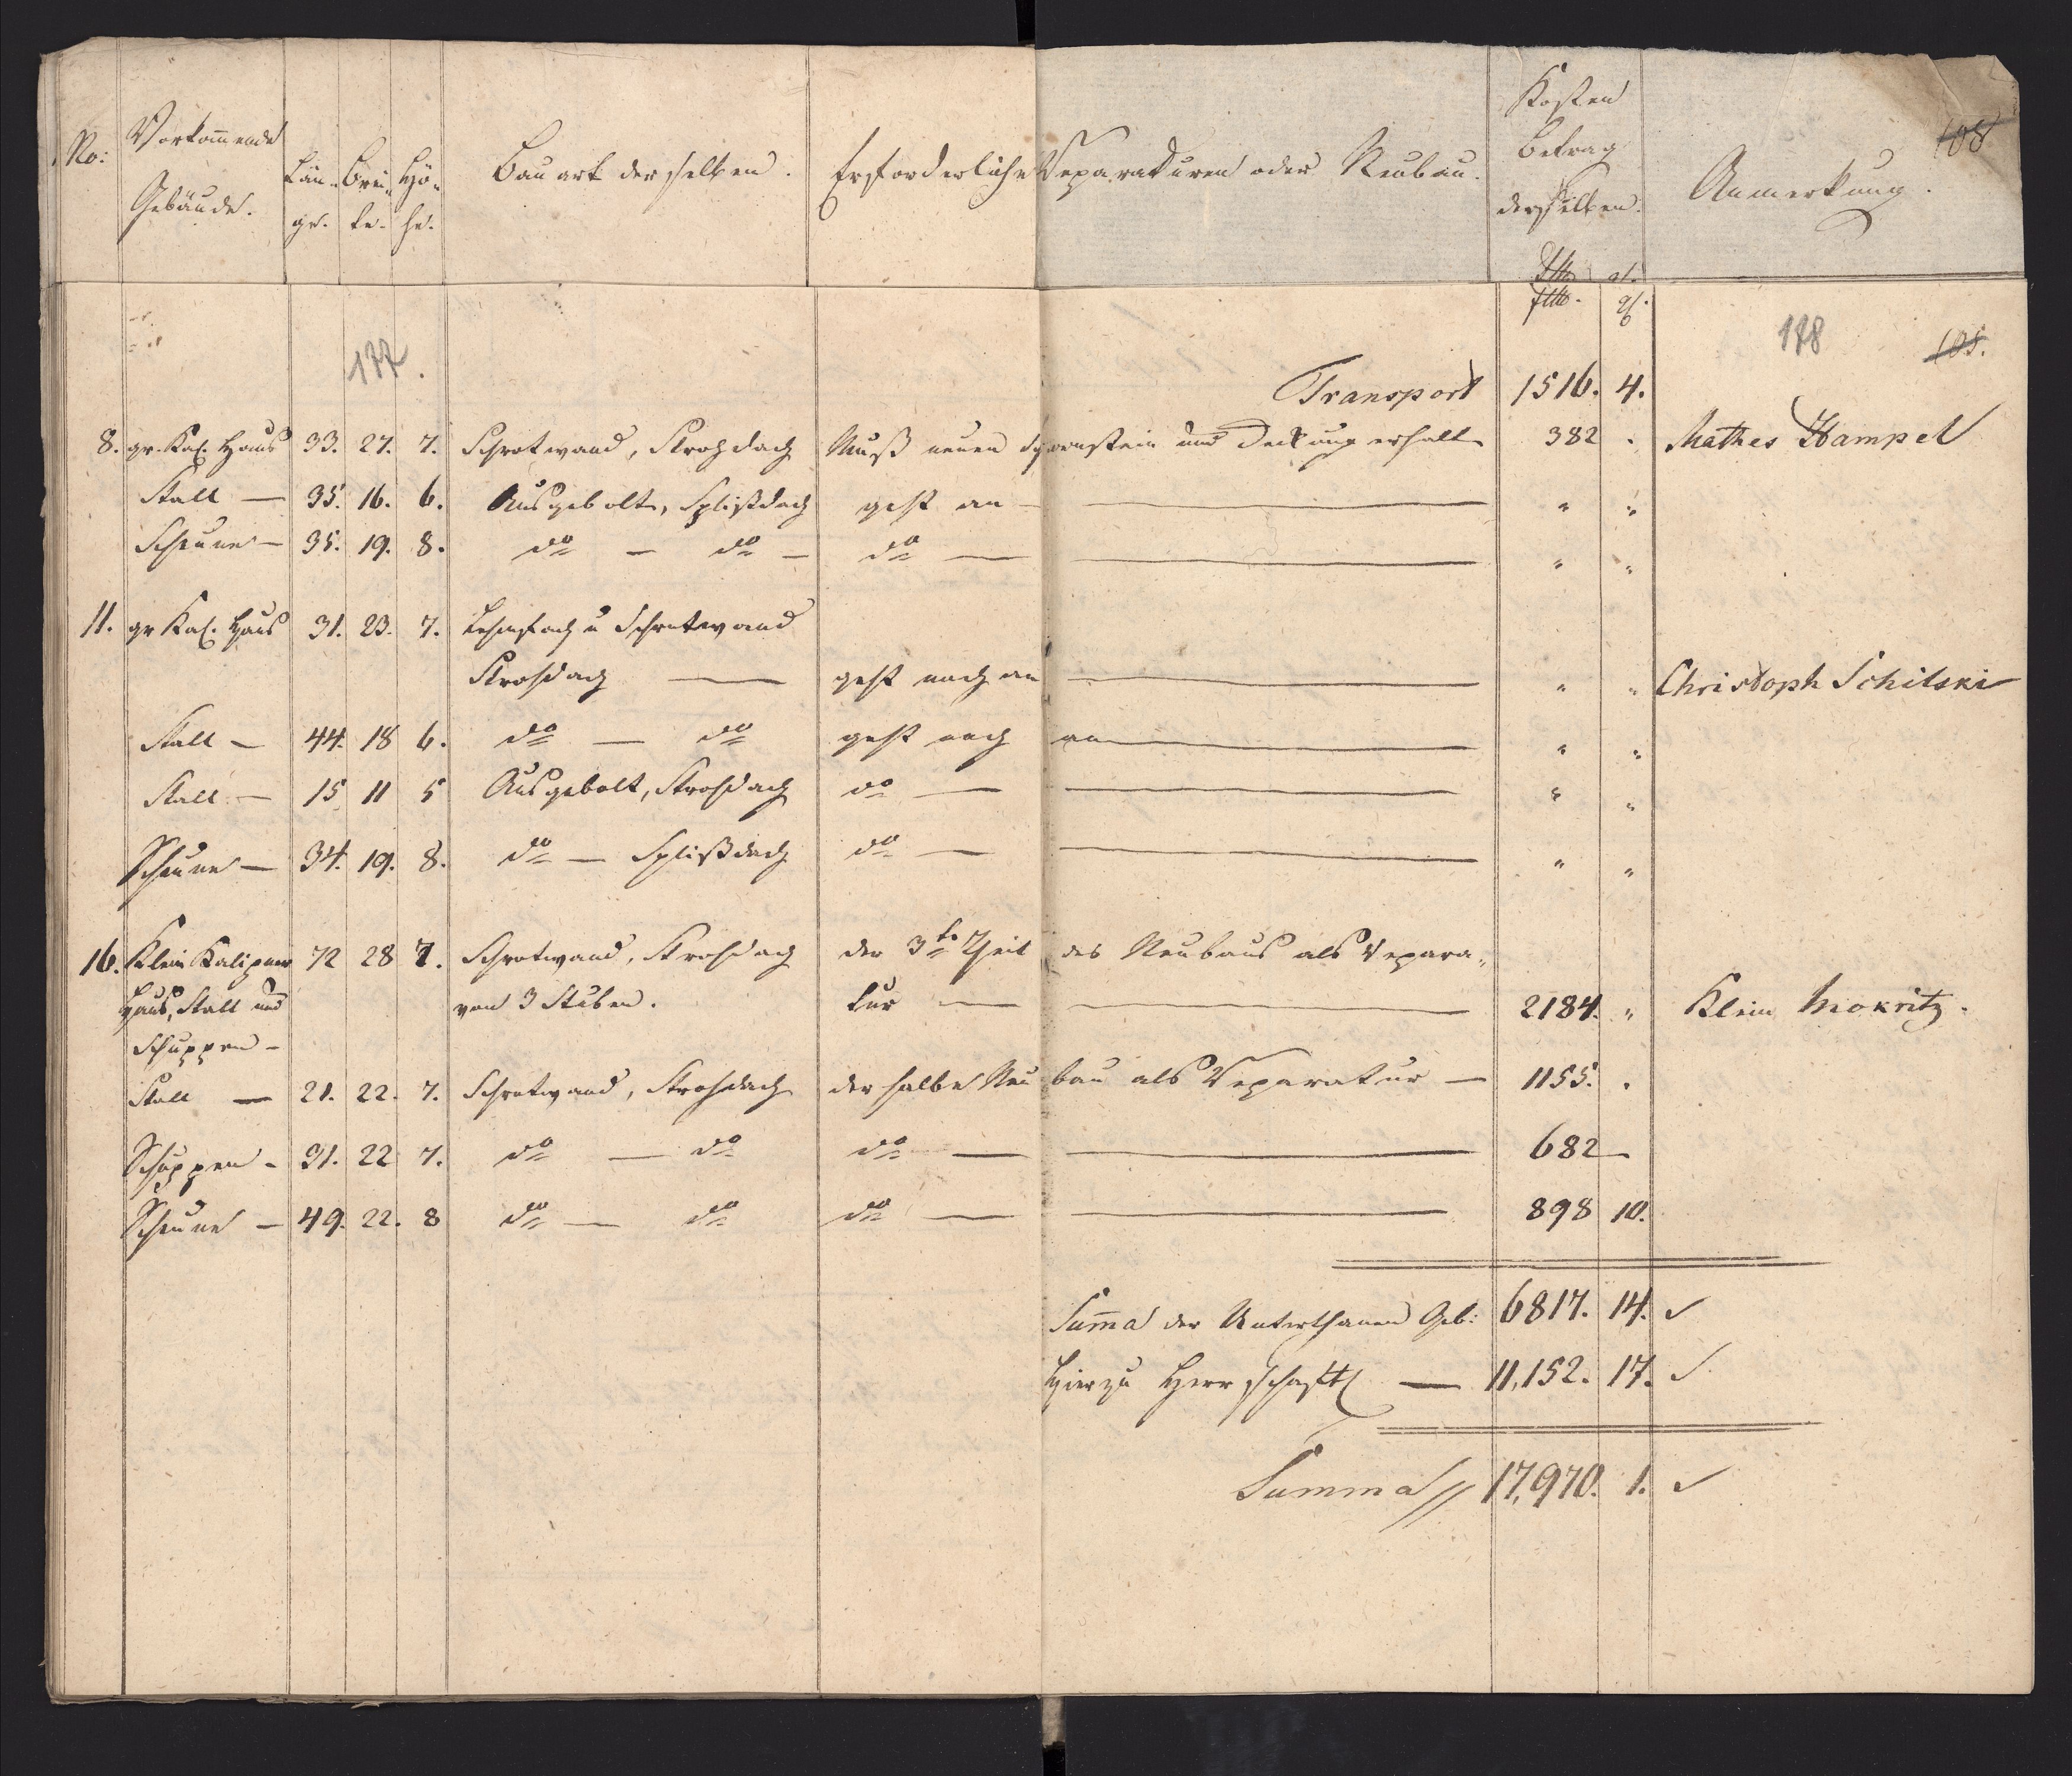 108
No: Vorkommende Gebäude. Län- ge. Brei- te. Hö- he. Bauart derselben. Erforderliche Reparaturen oder Neubau. Kosten Betrag derselben. Anmerkung.
rtlr. gl.
rtlr. gl.
177. 178 105.
Transport 1516. 4.
8. gr. Kal. Haus 33. 27. 7. Schrotwand, Strohdach Muß neuen Schornstein und Deckung erhalten 382 . Mathes Hampel
Stall — 35. 16. 6. Ausgebolt, Splißdach geht an — " "
Scheune — 35. 19. 8. do — do — do — " "
11. gr Kal. Haus 31. 23. 7. Lehmfach u Schrotwand
Strohdach — geht noch an — " " Christoph Schilski
Stall — 44. 18 6. do — do geht noch an — " "
Stall — 15 11 5 Ausgebolt, Strohdach do — " "
Scheune — 34. 19. 8. do — Splißdach do — " "
16. Klein Kalipner 72 28 7. Schrotwand, Strohdach der 3te Theil des Neubaus als Repara-
Haus, Stall und von 3 Stuben. tur — 2184. " Klein Mokritz.
Schuppen —
Stall — 21. 22. 7. Schrotwand, Strohdach der halbe Neubau als Reparatur — 1155. .
Schuppen — 31. 22 7. do — do do — 682 —
Scheune — 49. 22. 8 do — do do — 898 10.
Suma der Unterthanen Geb: 6817. 14. ✓
Hierzu Herrschaftl — 11,152. 17. ✓
Summa // 17,970. 1. ✓